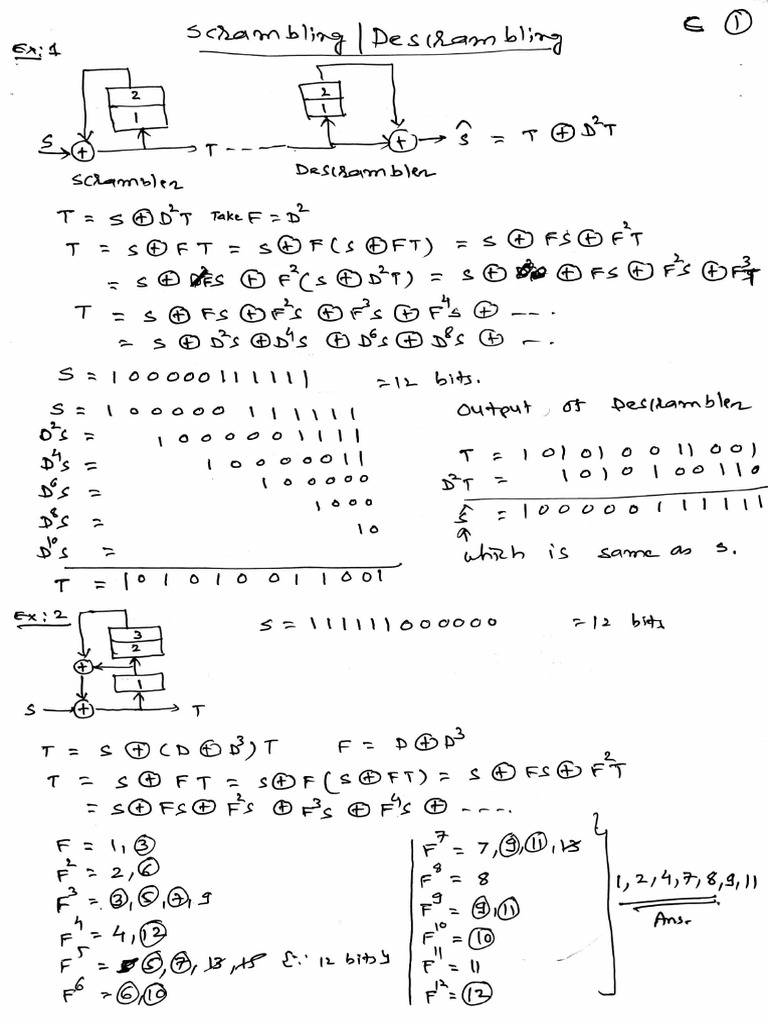 Scrambling | Descrambling
C ①
Ex: 1
2
1
S ⊕ T - - -
Scrambler
2
1
⊕ → Ŝ = T ⊕ D²T
Descrambler
T = S ⊕ D²T Take F = D²
T = S ⊕ F T = S ⊕ F(S ⊕ FT) = S ⊕ FS ⊕ F²T
= S ⊕ FS ⊕ F²(S ⊕ D²T) = S ⊕ ⊕ FS ⊕ F²S ⊕ F³T
T = S ⊕ FS ⊕ F²S ⊕ F³S ⊕ F⁴S ⊕ - - - .
= S ⊕ D²S ⊕ D⁴S ⊕ D⁶S ⊕ D⁸S ⊕ - .
S = 1 0 0 0 0 0 1 1 1 1 1 1 = 12 bits.
S = 1 0 0 0 0 0 1 1 1 1 1 1
D²S = 1 0 0 0 0 0 1 1 1 1
D⁴S = 1 0 0 0 0 0 1 1
D⁶S = 1 0 0 0 0 0
D⁸S = 1 0 0 0
D¹⁰S = 1 0
T = 1 0 1 0 1 0 0 1 1 0 0 1
Output of Descrambler
T = 1 0 1 0 1 0 0 1 1 0 0 1
D²T = 1 0 1 0 1 0 0 1 1 0
Ŝ = 1 0 0 0 0 0 1 1 1 1 1 1
which is same as S.
Ex: 2
3
2
⊕
1
S ⊕ T
S = 1 1 1 1 1 1 0 0 0 0 0 0 = 12 bits
T = S ⊕ (D ⊕ D³) T F = D ⊕ D³
T = S ⊕ F T = S ⊕ F(S ⊕ FT) = S ⊕ FS ⊕ F²T
= S ⊕ FS ⊕ F²S ⊕ F³S ⊕ F⁴S ⊕ - - - - .
F = 1, ③
F² = 2, ⑥
F³ = ③, ⑤, ⑦, 9
F⁴ = 4, ⑫
F⁵ = ⑤, ⑦, 13, 15 {∵ 12 bits}
F⁶ = ⑥, ⑩
F⁷ = 7, ⑨, ⑪, 13
F⁸ = 8
F⁹ = ⑨, ⑪
F¹⁰ = ⑩
F¹¹ = 11
F¹² = ⑫
1, 2, 4, 7, 8, 9, 11
Ans.